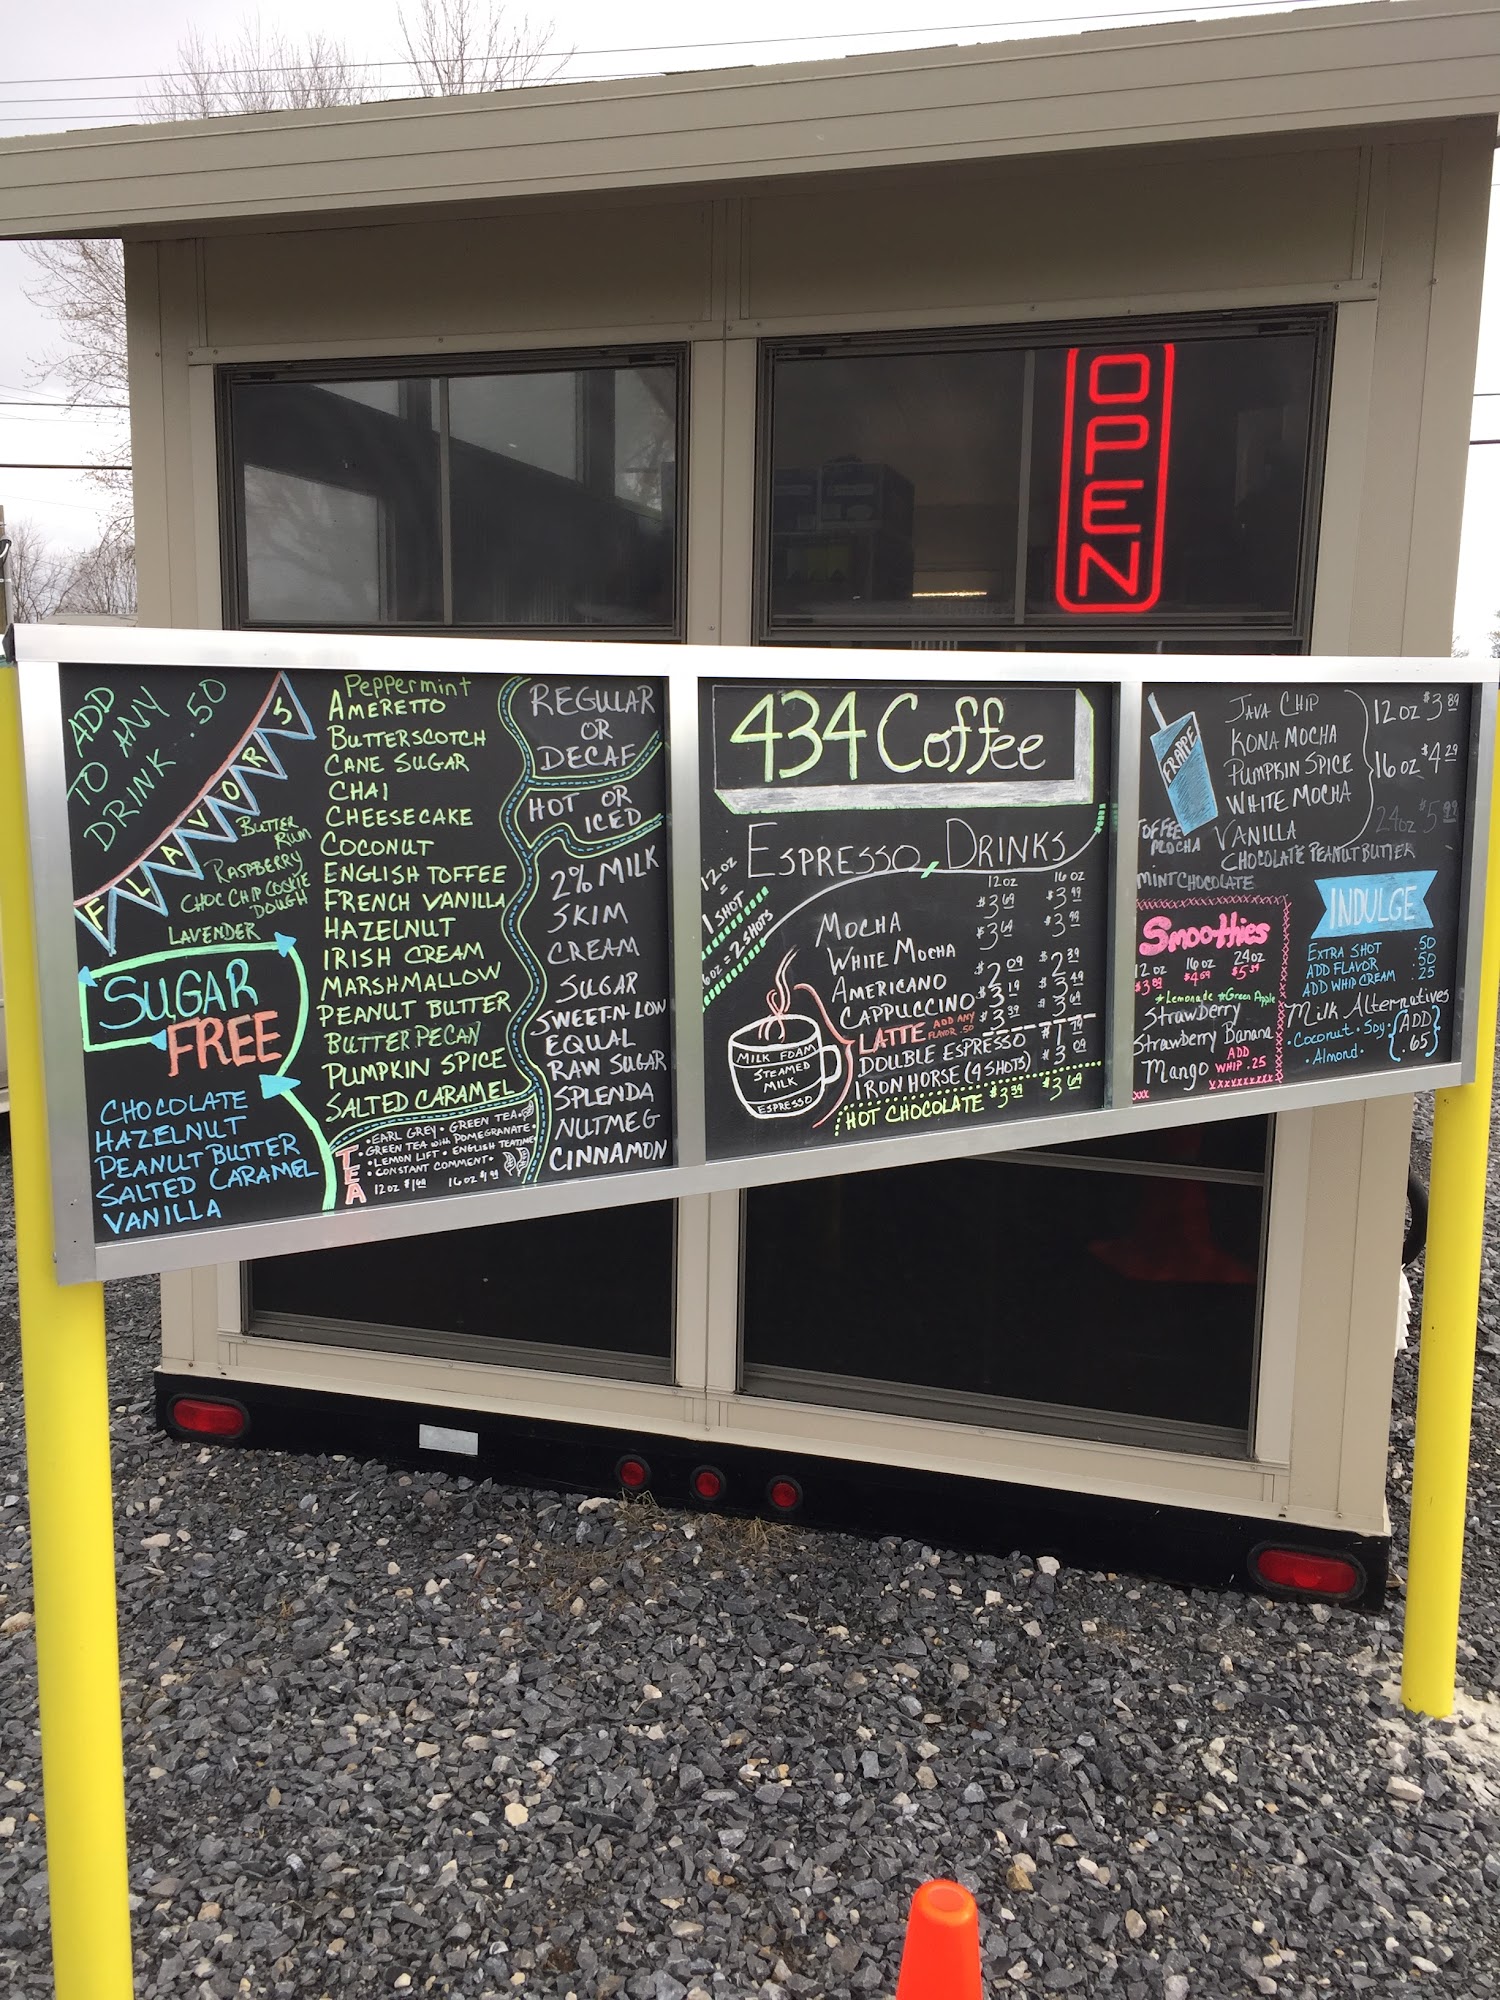 OPEN
ADD
TO ANY
DRINK .50
FLAVORS
BUTTER
RUM
RASPBERRY
CHOC CHIP COOKIE
DOUGH
LAVENDER
SUGAR
FREE
CHOCOLATE
HAZELNUT
PEANUT BUTTER
SALTED CARAMEL
VANILLA
PEPPERMINT
AMERETTO
BUTTERSCOTCH
CANE SUGAR
CHAI
CHEESECAKE
COCONUT
ENGLISH TOFFEE
FRENCH VANILLA
HAZELNUT
IRISH CREAM
MARSHMALLOW
PEANUT BUTTER
BUTTER PECAN
PUMPKIN SPICE
SALTED CARAMEL
TEA
• EARL GREY • GREEN TEA
• GREEN TEA WITH POMEGRANATE •
• LEMON LIFT • ENGLISH TEATIME
• CONSTANT COMMENT •
12 OZ 16 OZ
REGULAR
OR
DECAF
HOT OR
ICED
2% MILK
SKIM
CREAM
SUGAR
SWEET-N LOW
EQUAL
RAW SUGAR
SPLENDA
NUTMEG
CINNAMON
434 Coffee
ESPRESSO DRINKS
12 OZ =
1 SHOT
16 OZ = 2 SHOTS
12 OZ 16 OZ
MOCHA $3 69 $3 99
WHITE MOCHA $3 69 $3 99
AMERICANO $2 09 $2 39
CAPPUCCINO $3 19 $3 49
LATTE ADD ANY FLAVOR .50 $3 39 $3 69
DOUBLE ESPRESSO $1 79
IRON HORSE (4 SHOTS) $3 09
HOT CHOCOLATE $3 39 $3 69
MILK FOAM
STEAMED
MILK
ESPRESSO
FRAPE
JAVA CHIP
KONA MOCHA
PUMPKIN SPICE
WHITE MOCHA
VANILLA
CHOCOLATE PEANUT BUTTER
TOFFEE
MOCHA
MINT CHOCOLATE
12 OZ $3 89
16 OZ $4 29
24 OZ $5 99
Smoothies
12 OZ 16 OZ 24 OZ
$3 89 $4 69 $5 39
*Lemonade *Green Apple
Strawberry
Strawberry Banana
Mango
ADD
WHIP .25
INDULGE
EXTRA SHOT .50
ADD FLAVOR .50
ADD WHIP CREAM .25
Milk Alternatives
• Coconut • Soy •
• Almond •
{ADD
.65}